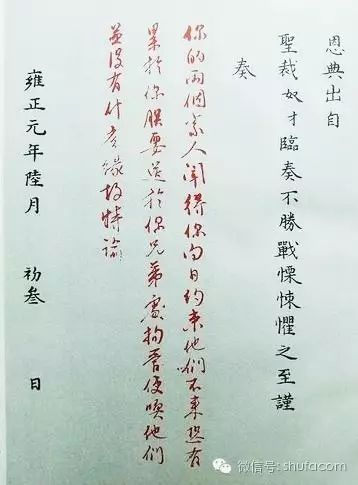 恩典出自
聖裁奴才臨奏不勝戰慄悚懼之至謹
奏
你的兩個家人聞得你向日約束他們不来恐有
累於你朕要送於你兄弟處拘管使喚他們
並没有什么緣故特諭
雍正元年陸月 初叁 日
微信号: shufacom